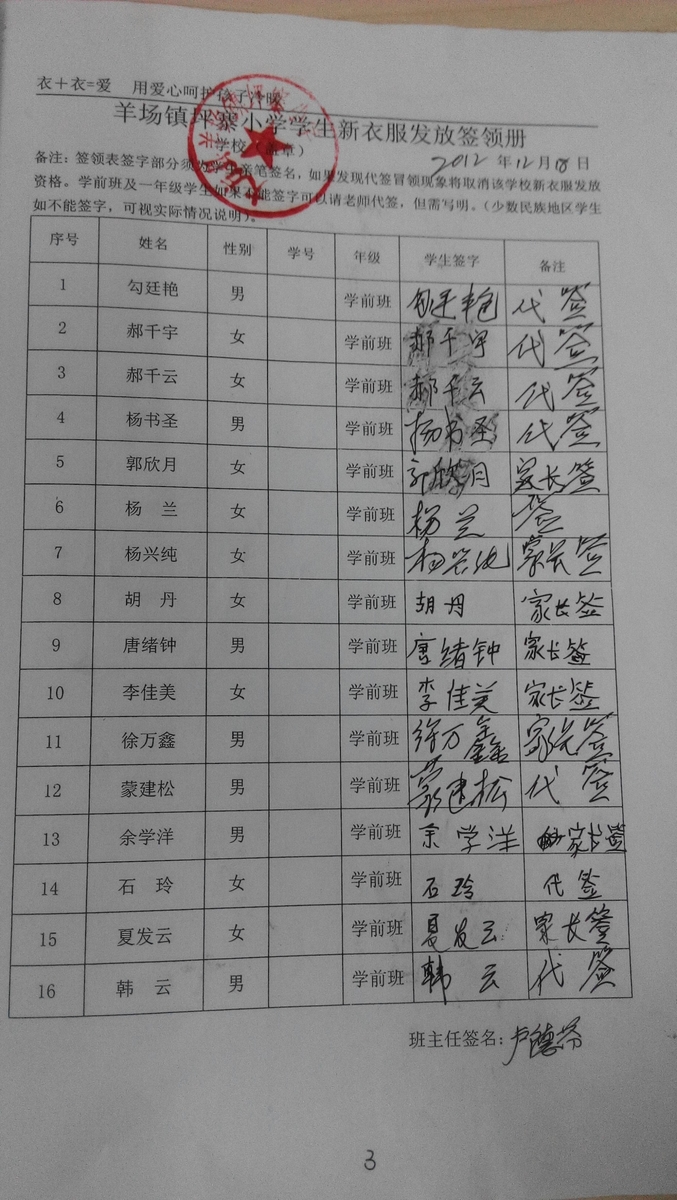 衣+衣=爱 用爱心呵护孩子冷暖
羊场镇坪寨小学学生新衣服发放签领册
学校（盖章） 2012年12月18日
备注：签领表签字部分须为学生亲笔签名，如果发现代签冒领现象将取消该学校新衣服发放
资格。学前班及一年级学生如果不能签字可以请老师代签，但需写明。（少数民族地区学生
如不能签字，可视实际情况说明）。
序号 姓名 性别 学号 年级 学生签字 备注
1 勾廷艳 男 学前班 勾廷艳 代签
2 郝千宇 女 学前班 郝千宇 代签
3 郝千云 女 学前班 郝千云 代签
4 杨书圣 男 学前班 杨书圣 代签
5 郭欣月 女 学前班 郭欣月 家长签
6 杨 兰 女 学前班 杨兰 签
7 杨兴纯 女 学前班 杨兴纯 家长签
8 胡 丹 女 学前班 胡丹 家长签
9 唐绪钟 男 学前班 唐绪钟 家长签
10 李佳美 女 学前班 李佳美 家长签
11 徐万鑫 男 学前班 徐万鑫 家长签
12 蒙建松 男 学前班 蒙建松 代签
13 余学洋 男 学前班 余学洋 家长签
14 石 玲 女 学前班 石玲 代签
15 夏发云 女 学前班 夏发云 家长签
16 韩 云 男 学前班 韩云 代签
班主任签名：卢德芬
3